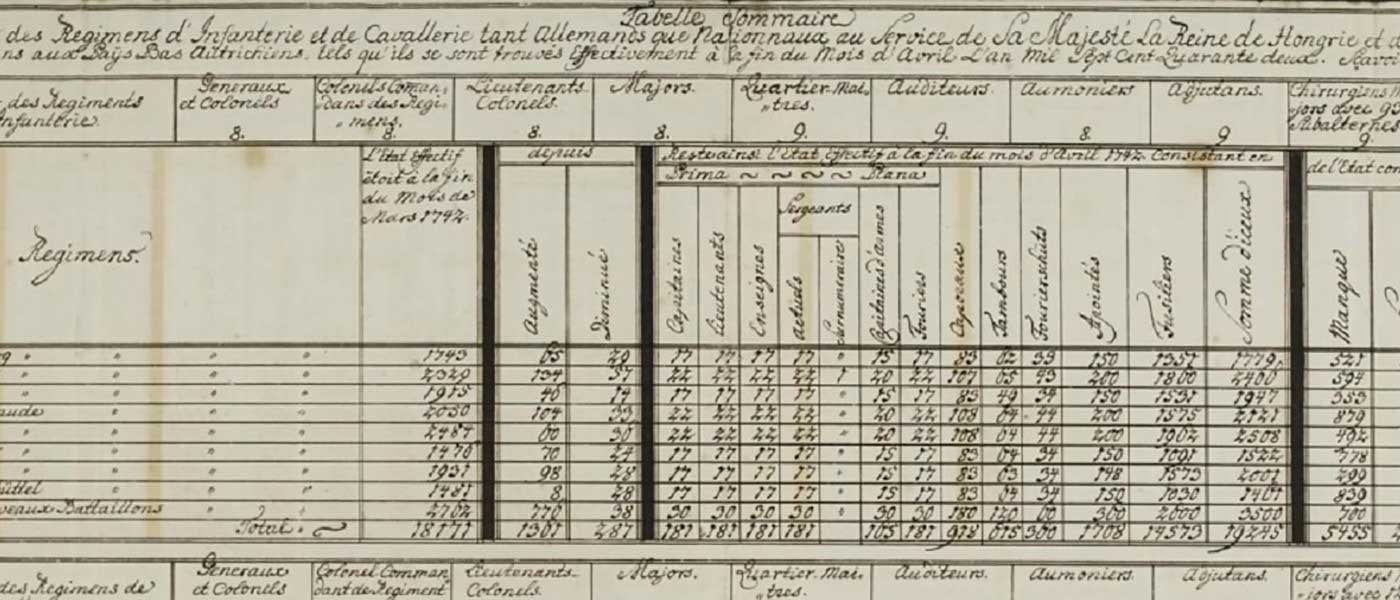 Tabelle Sommaire
des Regimens d'Infanterie et de Cavallerie tant Allemands que Nationnaux au Service de Sa Majesté La Reine de Hongrie et d
ns aux Païs Bas Autrichiens. tels qu'ils se sont trouvés Effectivement à la fin du Mois d'Avril L'an Mil Sept Cent Quarante deux. Savoir
des Regiments
nfanterie.
Generaux
et Colonels
8.
Colonels Coman,
"dans des Regi-
"mens.
8.
Lieutenants
Colonels.
8.
Majors.
8.
Quartier Mai-
"tres.
9.
Auditeurs.
9.
Aumoniers
8.
Adjutans.
9
Chirurgiens M
"jors avec 9
Subalternes
9.
Regimens.
L'Etat Effectif
étoit à la fin
du Mois de
Mars 1742.
depuis
Augmenté
Diminué
Restrains l'Etat Effectif à la fin du mois d'Avril 1742. Consistant en
Prima ~ ~ ~ ~ Plana
Capitaines
Lieutenants
Enseignes
Sergeants
actuels
surnumeraires
Capitaines d'armes
Fouriers
Caporeaux
Tambours
Fourierschüts
Apointés
Fusiliers
Somme d'iceux
de l'Etat con
Manque
g " " " " 1743 65 29 17 17 17 17 " 15 17 83 62 33 150 1351 1779 521
" " " " 2329 134 57 22 22 22 22 1 20 22 107 65 43 200 1800 2400 594
" " " " 1915 46 14 17 17 17 17 " 15 17 83 49 34 150 1531 1947 353
aude " " " 2050 104 33 22 22 22 22 " 20 22 108 64 44 200 1575 2121 879
" " " " 2484 60 36 22 22 22 22 " 20 22 108 64 44 200 1962 2508 492
" " " " 1476 70 24 17 17 17 17 " 15 17 83 64 34 150 1091 1522 778
" " " " 1931 98 28 17 17 17 17 " 15 17 83 63 34 148 1573 2001 299
üttel " " " 1481 8 28 17 17 17 17 " 15 17 83 64 34 150 1030 1461 839
veaux Battaillons " " 2762 776 38 30 30 30 30 " 30 30 180 120 60 300 2000 3500 700
Total. 18171 1361 287 181 181 181 181 165 181 918 615 360 1708 14573 19245 5455
des Regimens de
Generaux
et Colonels
Colonel Comman
dant de Regiment
Lieutenants
Colonels.
Majors.
Quartier Mai-
"tres.
Auditeurs.
Aumoniers.
Adjutans.
Chirurgiens
"jors avec